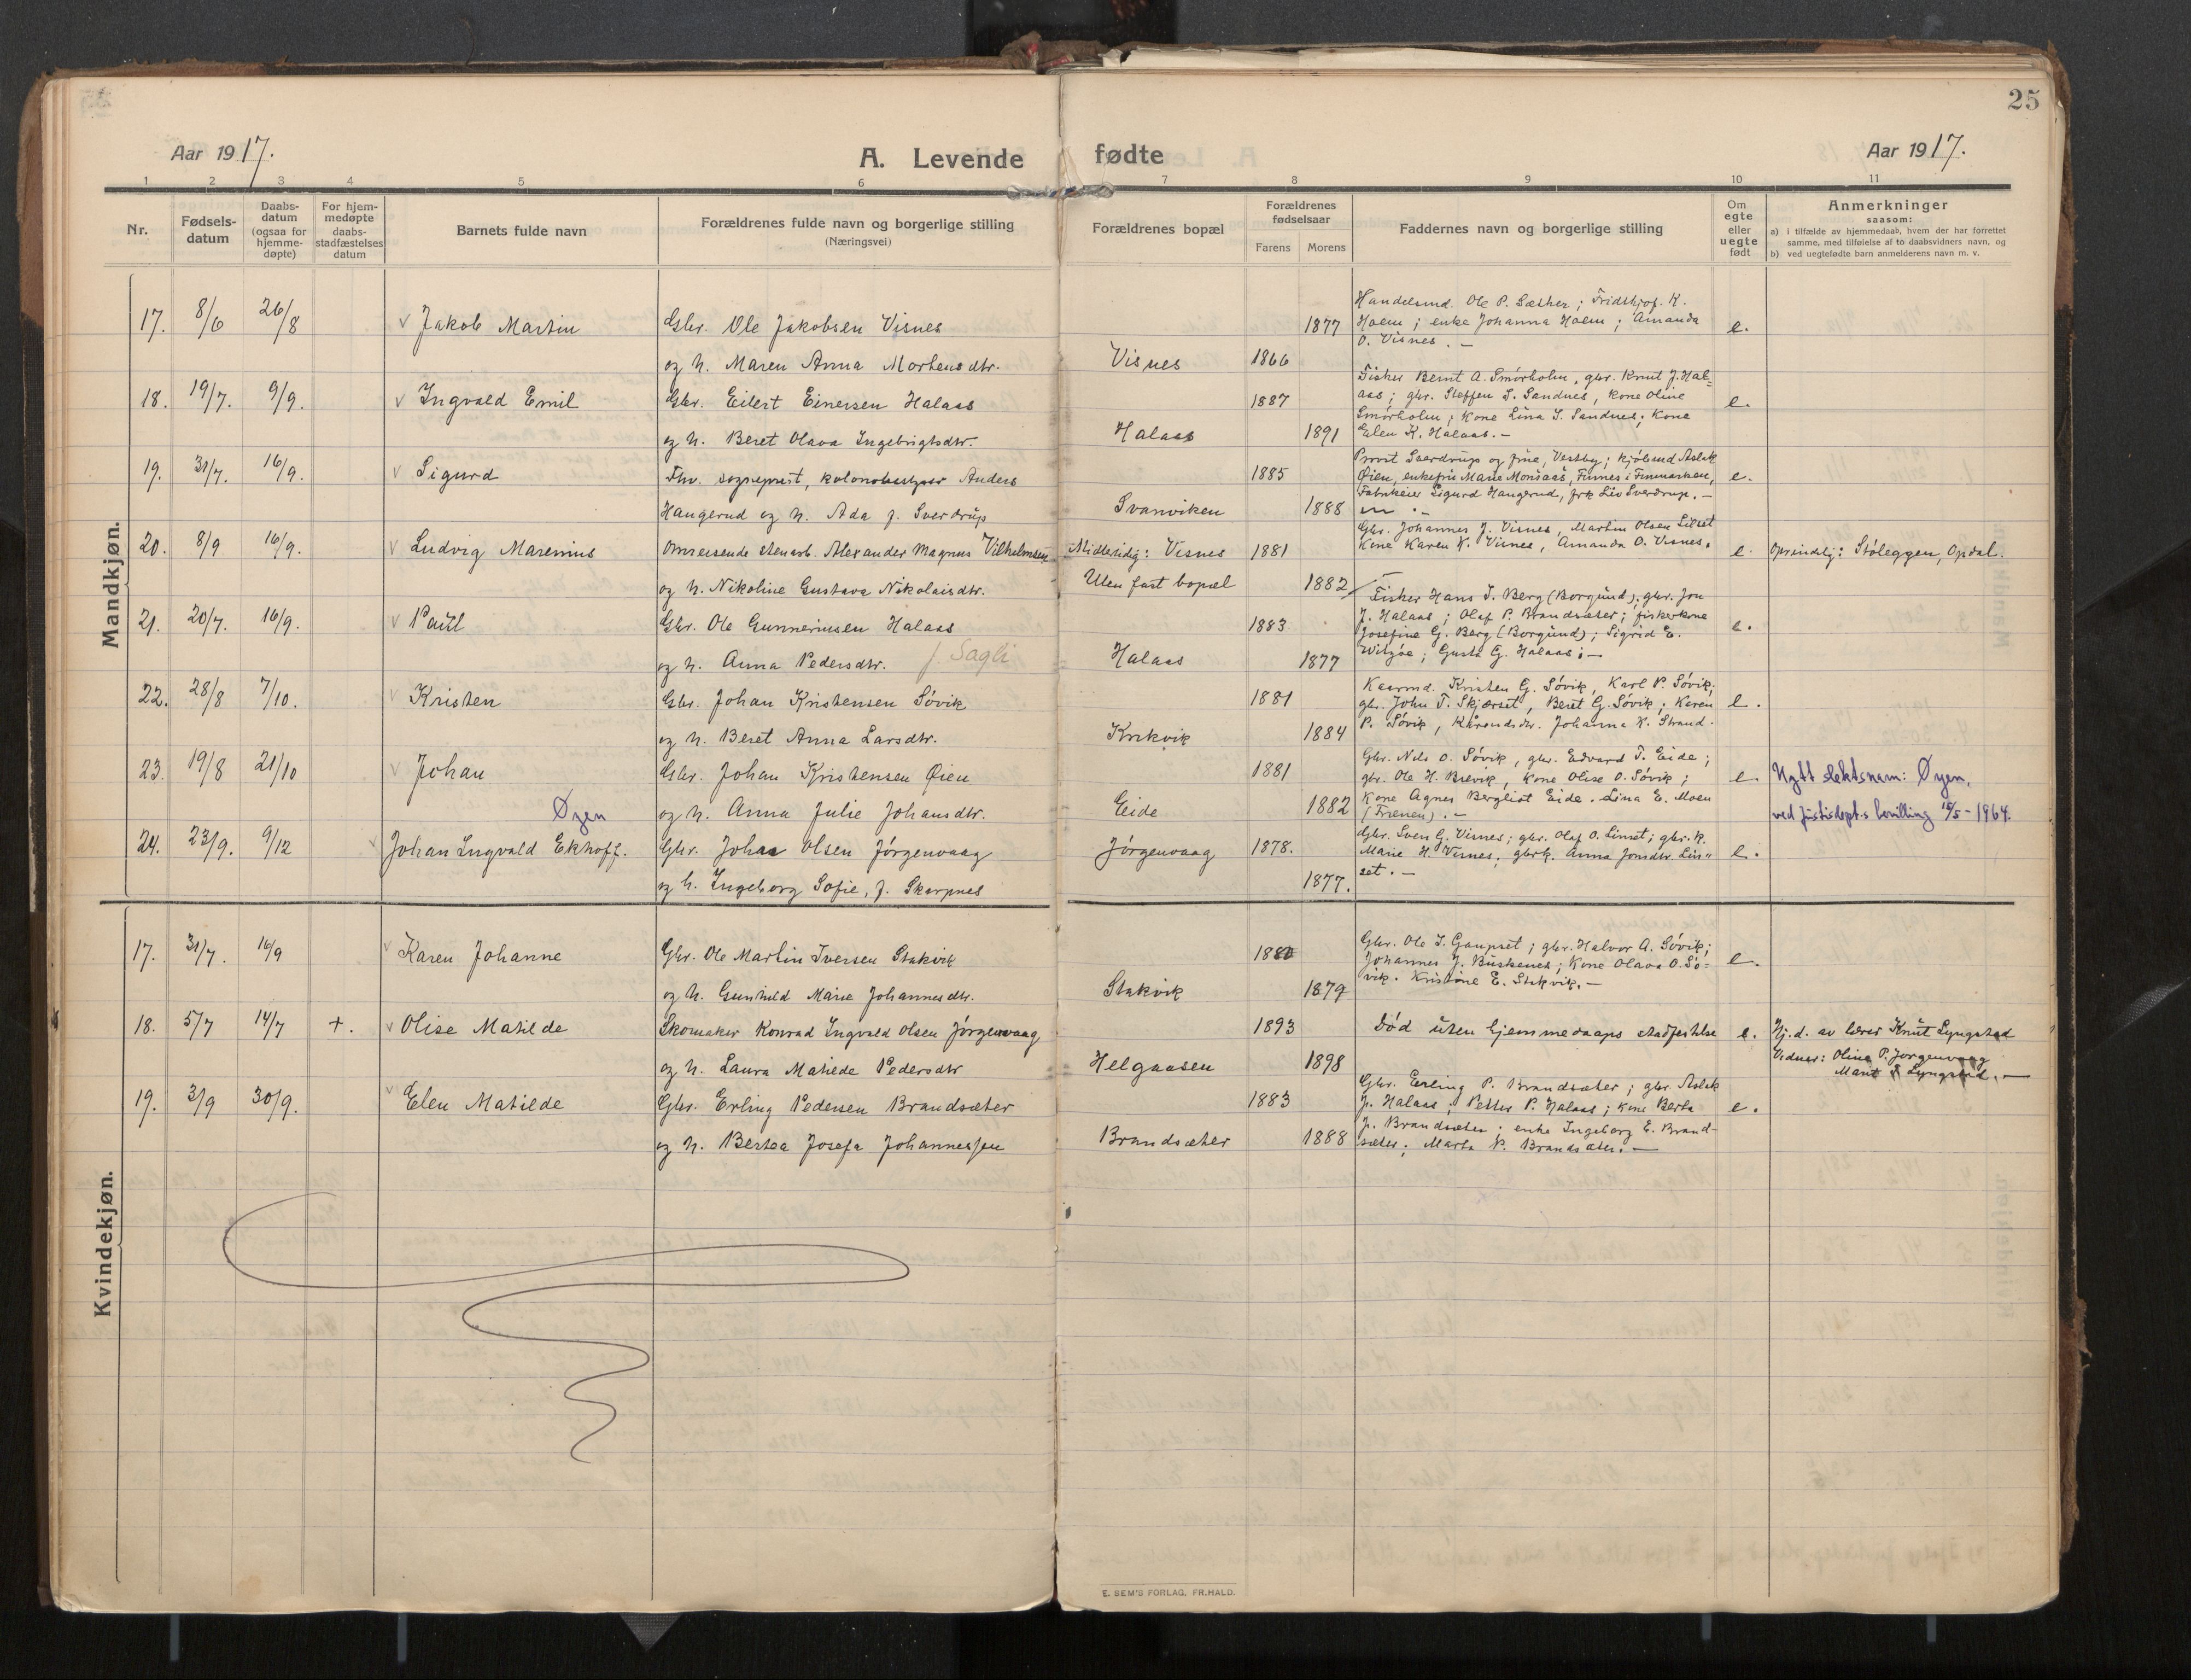 25
Aar 1917.
A. Levende fødte
Aar 1917.
1 2 3 4 5 6 7 8 9 10 11
Nr.
Fødsels-
datum
Daabs-
datum
(ogsaa for
hjemme-
døpte)
For hjem-
medøpte
daabs-
stadfæstelses
datum
Barnets fulde navn
Forældrenes fulde navn og borgerlige stilling
(Næringsvei)
Forældrenes bopæl
Forældrenes
fødselsaar
Farens Morens
Faddernes navn og borgerlige stilling
Om
egte
eller
uegte
født
Anmerkninger
saasom:
a) i tilfælde av hjemmedaab, hvem der har forrettet
samme, med tilføielse af to daabsvidners navn, og
b) ved uegtefødte barn anmelderens navn m. v.
Mandkjøn.
17. 8/6 26/8 Jakob Martin
Gbr. Ole Jakobsen Visnes
og h. Maren Anna Mortensdtr.
Visnes 1866 1877
Handelsmd. Ole P. Sæther; Fridthjof K.
Holm; enke Johanna Holm; Amanda
O. Visnes. -
e.
18. 19/7. 9/9. Ingvald Emil
Gbr. Eilert Einersen Halaas
og h. Beret Olava Ingebrigtsdtr.
Halaas 1887 1891
Fisker Bernt A. Smörholm, gbr. Knut J. Hal-
aas; gbr. Steffen S. Sandnes, kone Oline
Smörholm; kone Lina S. Sandnes; kone
Elen K. Halaas. -
e.
19. 31/7. 16/9. Sigurd
Fhv. sogneprest, kolonobestyrer Anders
Haugerud og h. Ada f. Sverdrup
Svanviken 1885 1888
Provst Sverdrup og frue, Vestby; kjöbmd Aslak
Øien, enkefru Marie Monsaas, Finnes i Finmarken,
Fabrikeier Sigurd Haugerud, frk Liv Sverdrup. -
e.
20. 8/9 16/9. Ludvig Marenius
Omreisende stenarb. Alexander Magnus Vilhelmsen
og h. Nikoline Gustava Nikolaisdtr.
Midlertidig: Visnes
Uten fast bopæl
1881 1882
Gbr. Johannes J. Visnes, Martin Olsen Lilset
Kone Karen K. Visnes, Amanda O. Visnes.
e. Oprindelig: Stöleggen, Opdal.
21. 20/7. 16/9. Paul
Gbr. Ole Gunneriusen Halaas
og h. Anna Pedersdtr. f. Sagli
Halaas 1883 1877
Fisker Hans J. Berg (Borgund); gbr. Jon
J. Halaas; Olaf P. Brandsæter; fiskerkone
Josefine G. Berg (Borgund); Sigrid E.
Witzöe; Gusta G. Halaas; -
e.
22. 28/8 7/10. Kristen
Gbr. Johan Kristensen Sövik
og h. Beret Anna Larsdtr.
Krikvik 1881 1884
Kaarmd. Kristen G. Sövik, Karl P. Sövik;
gbr. John T. Skjærset, Beret G. Sövik; Karen
P. Sövik, Johanna K. Strand.
e.
23. 19/8 21/10 Johan
Øyen
Gbr. Johan Kristensen Øien
og h. Anna Julie Johansdtr.
Eide 1881 1882
Gbr. Nils O. Sövik, gbr. Edvard T. Eide;
gbr. Ole H. Brevik, kone Olise O. Sövik;
kone Agnes Bergliot Eide. Lina E. Moen
(Frænen). -
e. Nytt slektsnavn: Øyen.
ved Justisdept.s bevilling 15/5 - 1964.
24. 23/9. 9/12 Johan Ingvald Ekhoff.
Gbr. Johan Olsen Jörgenvaag
og h. Ingeborg Sofie, f. Skarpnes
Jörgenvaag 1878. 1877.
Gbr. Sven G. Visnes; gbr. Olaf O. Linset; gbr. k.
Marie H. Visnes; gbrk. Anna Jonsdtr. Lin-
set. -
e.
Kvindekjøn.
17. 31/7. 16/9 Karen Johanne
Gbr. Ole Martin Iversen Stakvik
og h. Gunhild Marie Johannesdtr.
Stakvik 1880 1879
Gbr. Ole J. Gaupset; gbr. Halvor A. Sövik;
Johannes J. Buskenes; Kone Olava O. Sö-
vik. Kristine E. Stakvik. -
e.
18. 5/7 14/7 +. Olise Matilde
Skomaker Konrad Ingvald Olsen Jörgenvaag
og h. Laura Matilde Pedersdtr
Helgaasen 1893 1898
Död uten hjemmedaaps stadfestelse
e. Hj.d. av lærer Knut Lyngstad
Vidner: Olina P. Jorgenvaag
Marit Lyngstad. -
19. 3/9 30/9. Elen Matilde
Gbr. Erling Pedersen Brandsæter
og h. Bertea Josefa Johannessen
Brandsæter 1883 1888
Gbr. Erling P. Brandsæter; gbr. Aslak
P. Halaas; Petter P. Halaas; Kone Berta
J. Brandsæter; enke Ingeborg E. Brand-
sæter; Marta P. Brandsæter. -
e.
E. SEM'S FORLAG, FR.HALD.